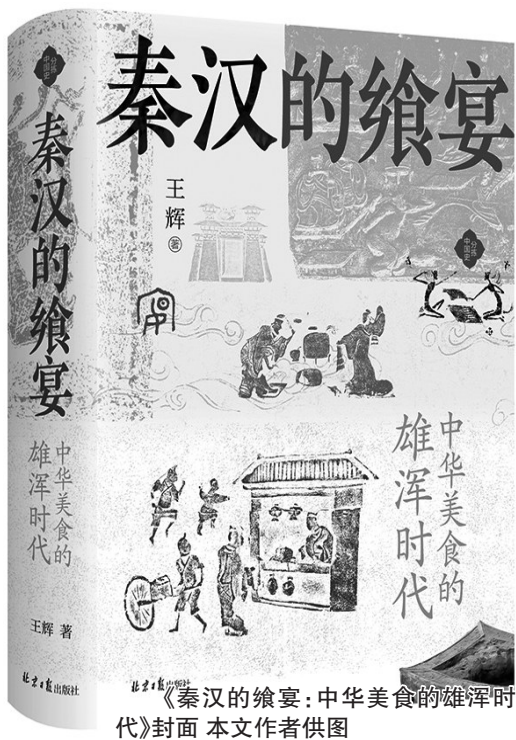 分冻
中国史
秦汉的飨宴
中华美食的
雄浑时代
王辉 著
北京日报出版社
秦汉的飨宴
王辉
著
中国史
中华美食的
雄浑时代
北京日报出版社
《秦汉的飨宴：中华美食的雄浑时
代》封面 本文作者供图